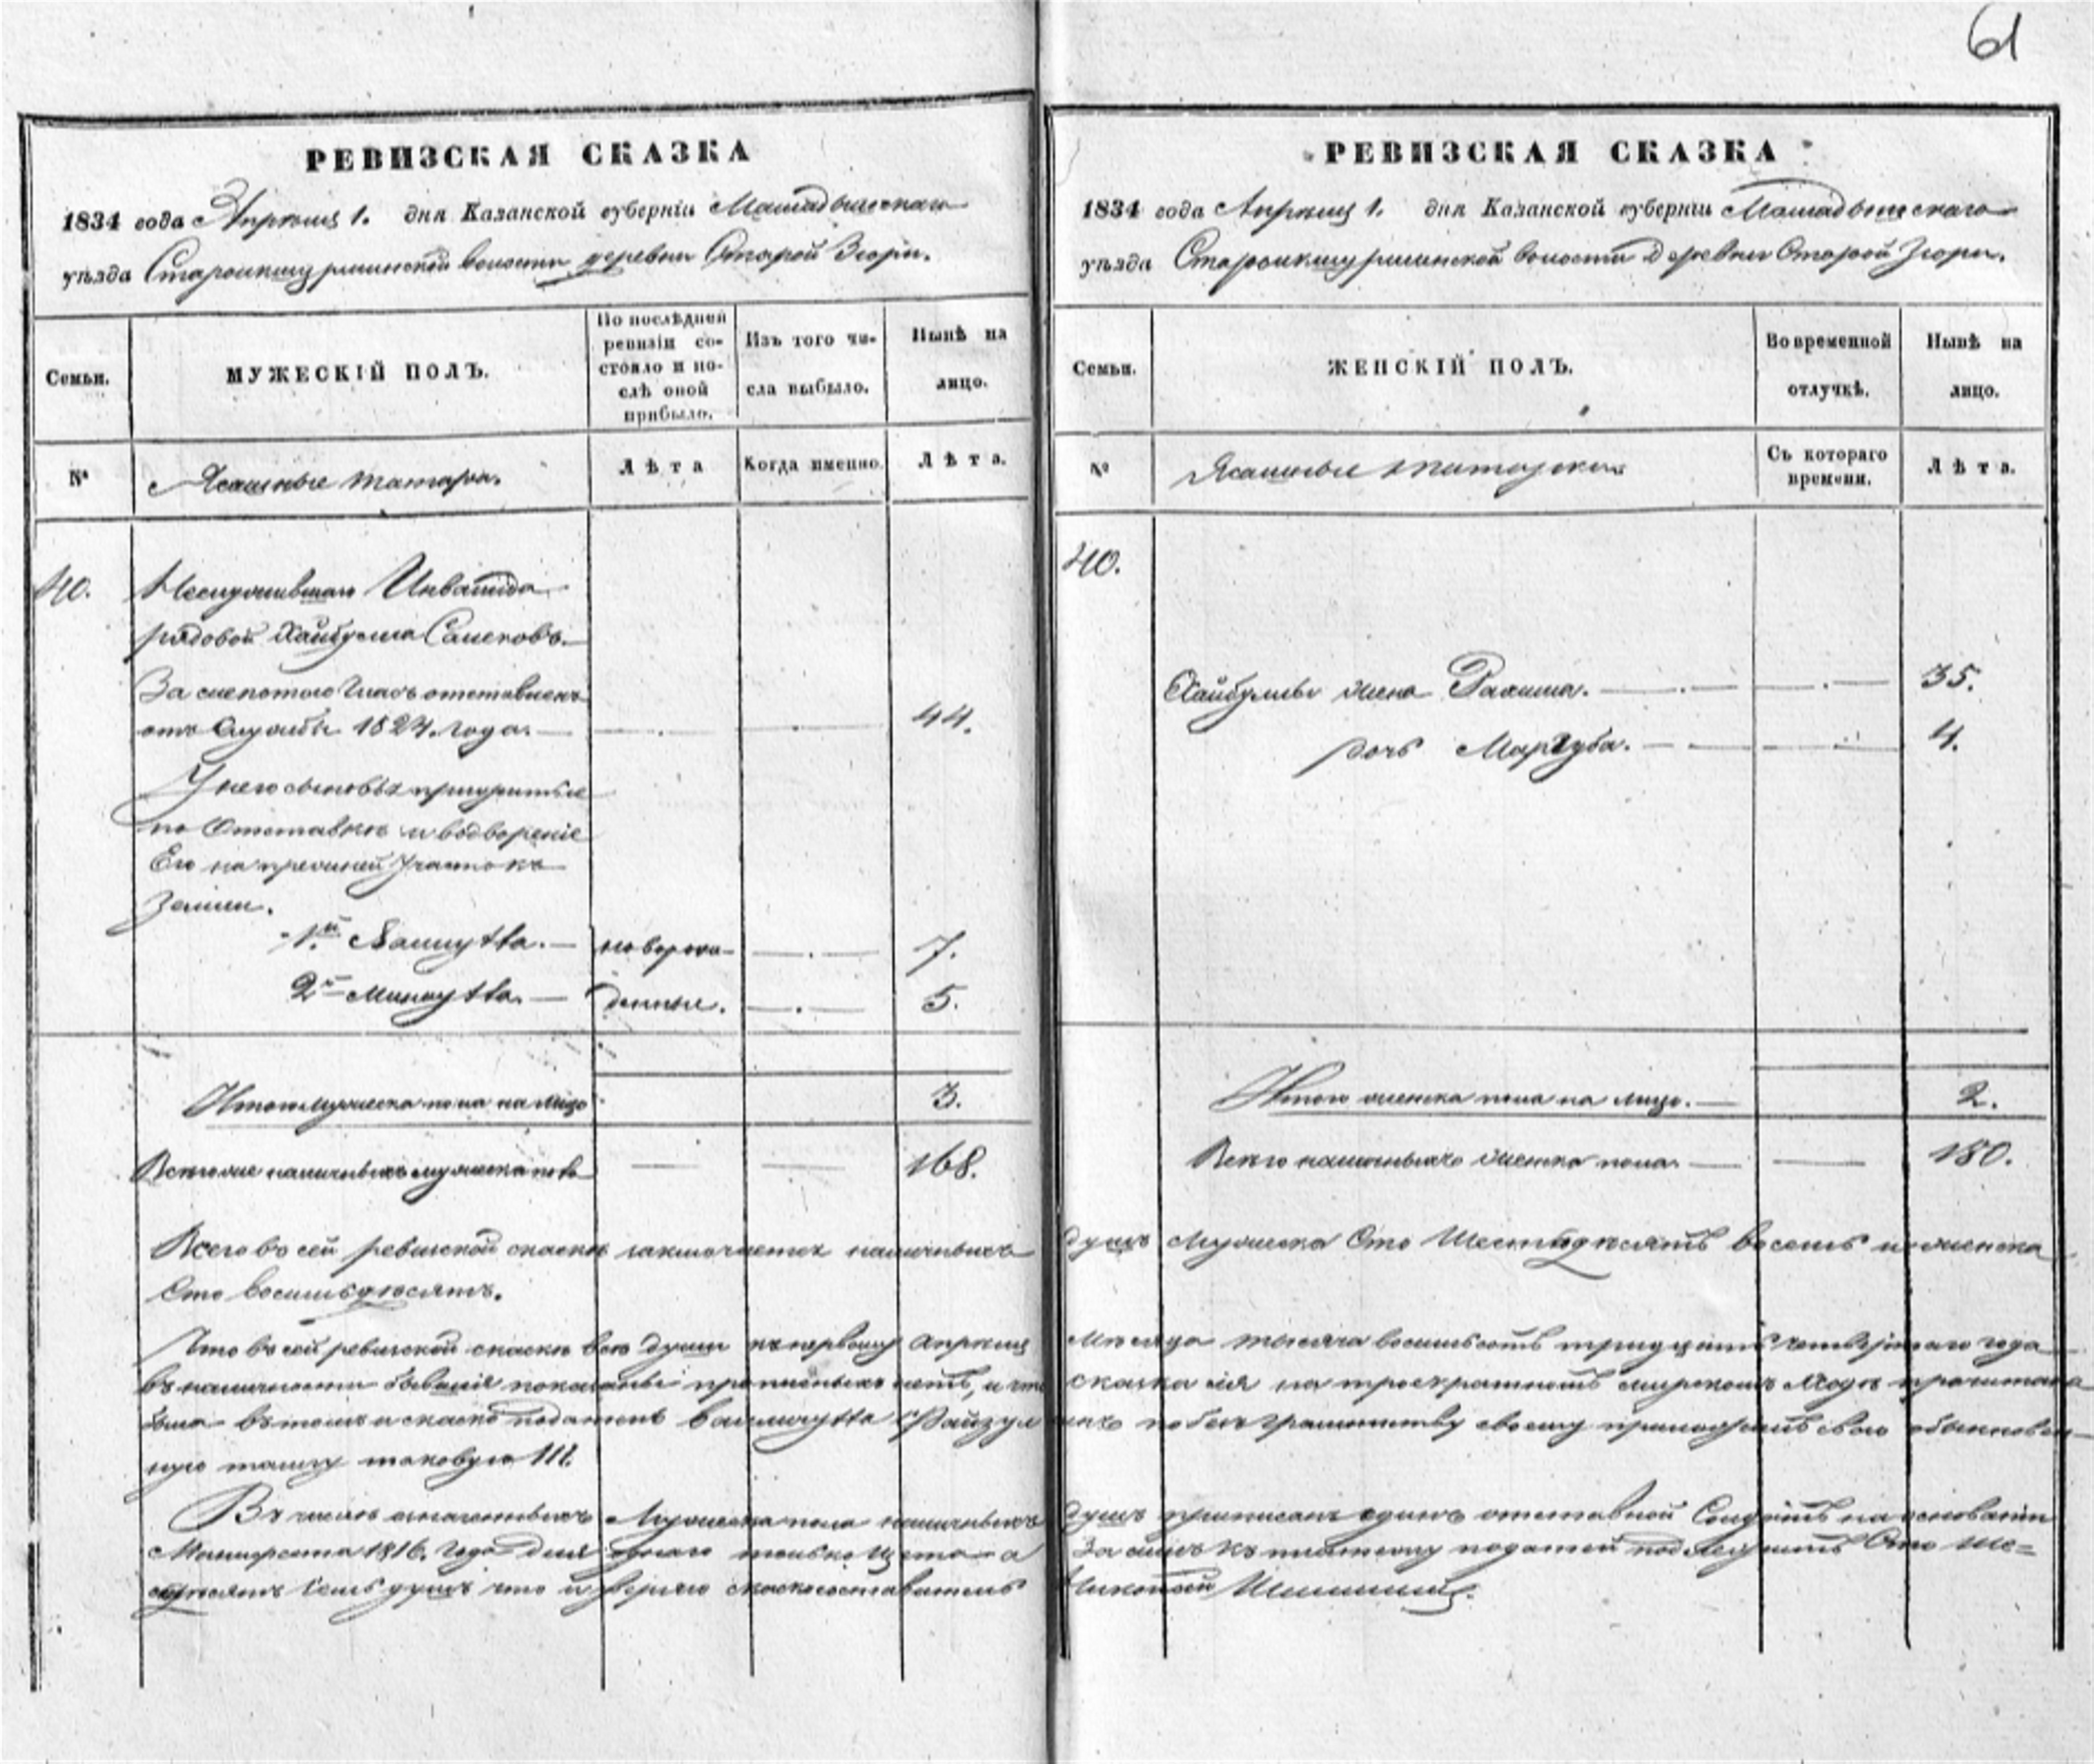 61
РЕВИЗСКАЯ СКАЗКА
1834 года Апрѣля 1. дня Казанской губерніи Мамадышскаго
уѣзда Староикшурминской волости деревни Старой Зюри.
Семьи.
МУЖЕСКІЙ ПОЛЪ.
По послѣдней ревизіи состояло и послѣ оной прибыло.
Изъ того числа выбыло.
Нынѣ на лицо.
№
Ясашные татара.
Лѣта
Когда именно.
Лѣта.
40.
Инвалида
рядовой Хайбулла
За слепотою глазъ отставленъ
отъ Службы 1824. года. 44.
У него сыновья прижитые
по Отставке и водвореніе
Его на прежней участокъ
земли.
1.й — новорож- 7.
2й — денные. 5.
Итого мужеска пола на лицо 3.
Всего же наличныхъ мужеска пола 168.
РЕВИЗСКАЯ СКАЗКА
1834 года Апрѣля 1. дня Казанской губерніи Мамадышскаго
уѣзда Староикшурминской волости Деревни Старой Зюри.
Семьи.
ЖЕНСКІЙ ПОЛЪ.
Во временной отлучкѣ.
Нынѣ на лицо.
№
Ясашные татарки
Съ котораго времени.
Лѣта.
40.
Хайбуллы жена 35.
дочь Маргуба. 4.
Итого женска пола на лицо. 2.
Всего наличныхъ женска пола. 180.
Всего во сей ревизской сказке заключается наличныхъ душъ Мужеска Сто Шестьдесятъ восемь и женска
Сто восемьдесятъ.
Что во сей ревизской сказке все души къ первому Апрѣля Месяца тысяча восемьсотъ тридцать четвертаго года
въ наличности бывшія показаны прописныхъ нетъ, и что сказка сія на троекратномъ мирскомъ сходе прочитана
была въ томъ и сказкоподатель по безграмотству своему приложилъ свою обыкновен-
ную тамгу таковую III.
Въ числе означенныхъ Мужеска пола наличныхъ душъ приписанъ одинъ отставной Солдатъ на основаніи
Манифеста 1816. года для одного только щета а за симъ къ платежу податей подлежитъ Сто ше-
стьдесятъ семь душъ что и верно сказкосоставитель Николай